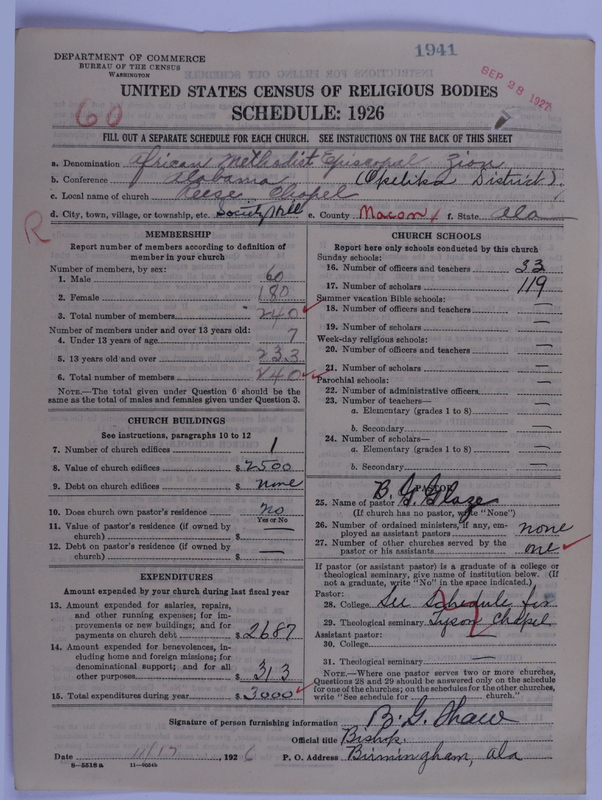 1941
DEPARTMENT OF COMMERCE
BUREAU OF THE CENSUS
WASHINGTON
SEP 28 1927
UNITED STATES CENSUS OF RELIGIOUS BODIES
60
SCHEDULE: 1926
FILL OUT A SEPARATE SCHEDULE FOR EACH CHURCH. SEE INSTRUCTIONS ON THE BACK OF THIS SHEET
a. Denomination African Methodist Episcopal Zion
b. Conference Alabama (Opelika District)
c. Local name of church Reese Chapel
d. City, town, village, or township, etc. Society Hill e. County Macon f. State Ala
R
MEMBERSHIP
Report number of members according to definition of member in your church
Number of members, by sex:
1. Male 60
2. Female 180
3. Total number of members 240
Number of members under and over 13 years old:
4. Under 13 years of age 7
5. 13 years old and over 233
6. Total number of members 240
NOTE.—The total given under Question 6 should be the
same as the total of males and females given under Question 3.
CHURCH BUILDINGS
See instructions, paragraphs 10 to 12
7. Number of church edifices 1
8. Value of church edifices $ 2500
9. Debt on church edifices $ none
10. Does church own pastor's residence no
Yes or No
11. Value of pastor's residence (if owned by
church) $ —
12. Debt on pastor's residence (if owned by
church) $ —
EXPENDITURES
Amount expended by your church during last fiscal year
13. Amount expended for salaries, repairs,
and other running expenses; for im-
provements or new buildings; and for
payments on church debt $ 2687
14. Amount expended for benevolences, in-
cluding home and foreign missions; for
denominational support; and for all
other purposes $ 313
15. Total expenditures during year $ 3000
CHURCH SCHOOLS
Report here only schools conducted by this church
Sunday schools:
16. Number of officers and teachers 33
17. Number of scholars 119
Summer vacation Bible schools:
18. Number of officers and teachers —
19. Number of scholars —
Week-day religious schools:
20. Number of officers and teachers —
21. Number of scholars —
Parochial schools:
22. Number of administrative officers —
23. Number of teachers—
a. Elementary (grades 1 to 8) —
b. Secondary —
24. Number of scholars—
a. Elementary (grades 1 to 8) —
b. Secondary —
PASTOR
25. Name of pastor B. G. Glaze
(If church has no pastor, write "None")
26. Number of ordained ministers, if any, em-
ployed as assistant pastors none
27. Number of other churches served by the
pastor or his assistants one
If pastor (or assistant pastor) is a graduate of a college or
theological seminary, give name of institution below. (If
not a graduate, write "No" in the space indicated.)
Pastor:
28. College See Schedule for
29. Theological seminary Tyson Chapel
Assistant pastor:
30. College
31. Theological seminary —
NOTE.—Where one pastor serves two or more churches,
Questions 28 and 29 should be answered only on the schedule
for one of the churches; on the schedules for the other churches,
write "See schedule for church."
Signature of person furnishing information B. G. Shaw
Official title Bishop
Date 11/17, 1926 P. O. Address Birmingham, Ala
8—5518a 11—9054b